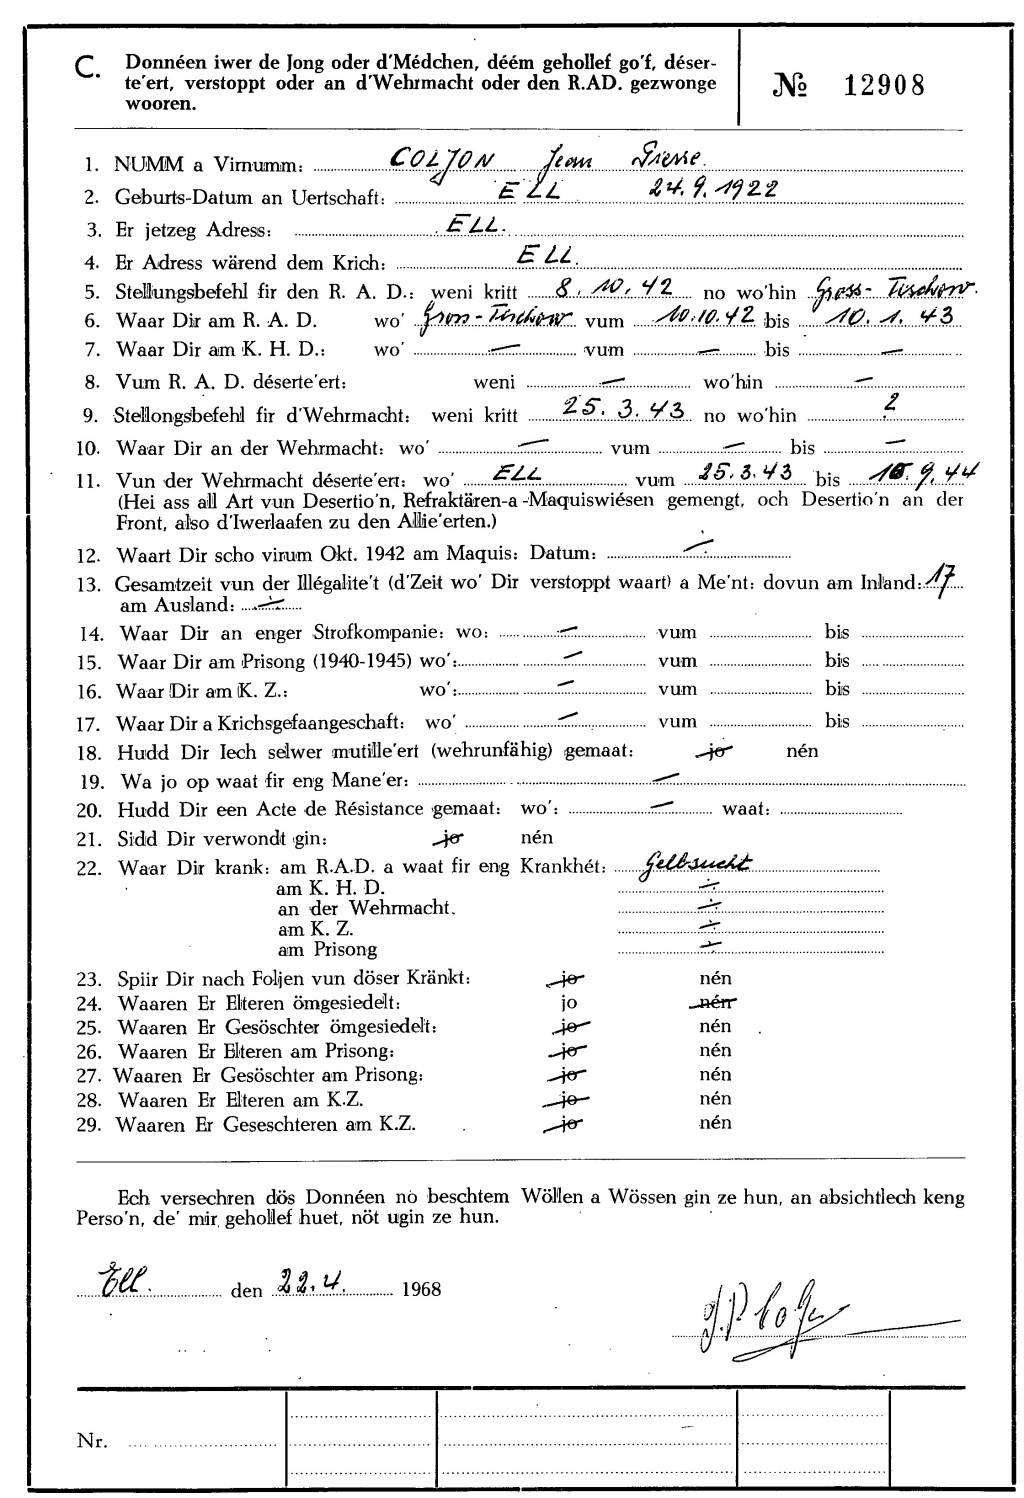 C. Donnéen iwer de Jong oder d'Médchen, déém gehollef go'f, déser-
te'ert, verstoppt oder an d'Wehrmacht oder den R.AD. gezwonge
wooren.
№ 12908
1. NUMM a Virnumm: COLJON Jean Pierre.
2. Geburts-Datum an Uertschaft: ELL 24.9.1922
3. Er jetzeg Adress: ELL.
4. Er Adress wärend dem Krich: ELL.
5. Stellungsbefehl fir den R. A. D.: weni kritt 8.10.42 no wo'hin Gross-Tischow.
6. Waar Dir am R. A. D. wo' Gross-Tischow vum 10.10.42 bis 10.1.43
7. Waar Dir am K. H. D.: wo' — vum — bis —
8. Vum R. A. D. déserte'ert: weni — wo'hin —
9. Stellongsbefehl fir d'Wehrmacht: weni kritt 25.3.43 no wo'hin ?
10. Waar Dir an der Wehrmacht: wo' — vum — bis —
11. Vun der Wehrmacht déserte'ert: wo' ELL vum 25.3.43 bis 10.9.44
(Hei ass all Art vun Desertio'n, Refraktären-a-Maquiswiésen gemengt, och Desertio'n an der
Front, also d'Iwerlaafen zu den Allie'erten.)
12. Waart Dir scho virum Okt. 1942 am Maquis: Datum: —
13. Gesamtzeit vun der Illégalite't (d'Zeit wo' Dir verstoppt waart) a Me'nt: dovun am Inland: 17
am Ausland: —
14. Waar Dir an enger Strofkompanie: wo: — vum bis
15. Waar Dir am Prisong (1940-1945) wo': — vum bis
16. Waar Dir am K. Z.: wo': — vum bis
17. Waar Dir a Krichsgefaangeschaft: wo' — vum bis
18. Hudd Dir Iech selwer mutille'ert (wehrunfähig) gemaat: jo nén
19. Wa jo op waat fir eng Mane'er: —
20. Hudd Dir een Acte de Résistance gemaat: wo': — waat:
21. Sidd Dir verwondt gin: jo nén
22. Waar Dir krank: am R.A.D. a waat fir eng Krankhét: Gelbsucht
am K. H. D. ÷
an der Wehrmacht. ÷
am K. Z. ÷
am Prisong ÷
23. Spiir Dir nach Foljen vun döser Kränkt: jo nén
24. Waaren Er Elteren ömgesiedelt: jo nén
25. Waaren Er Gesöschter ömgesiedelt: jo nén
26. Waaren Er Elteren am Prisong: jo nén
27. Waaren Er Gesöschter am Prisong: jo nén
28. Waaren Er Elteren am K.Z. jo nén
29. Waaren Er Geseschteren am K.Z. jo nén
Ech versechren dös Donnéen no beschtem Wöllen a Wössen gin ze hun, an absichtlech keng
Perso'n, de' mir gehollef huet, nöt ugin ze hun.
Ell. den 22.4. 1968
Nr.